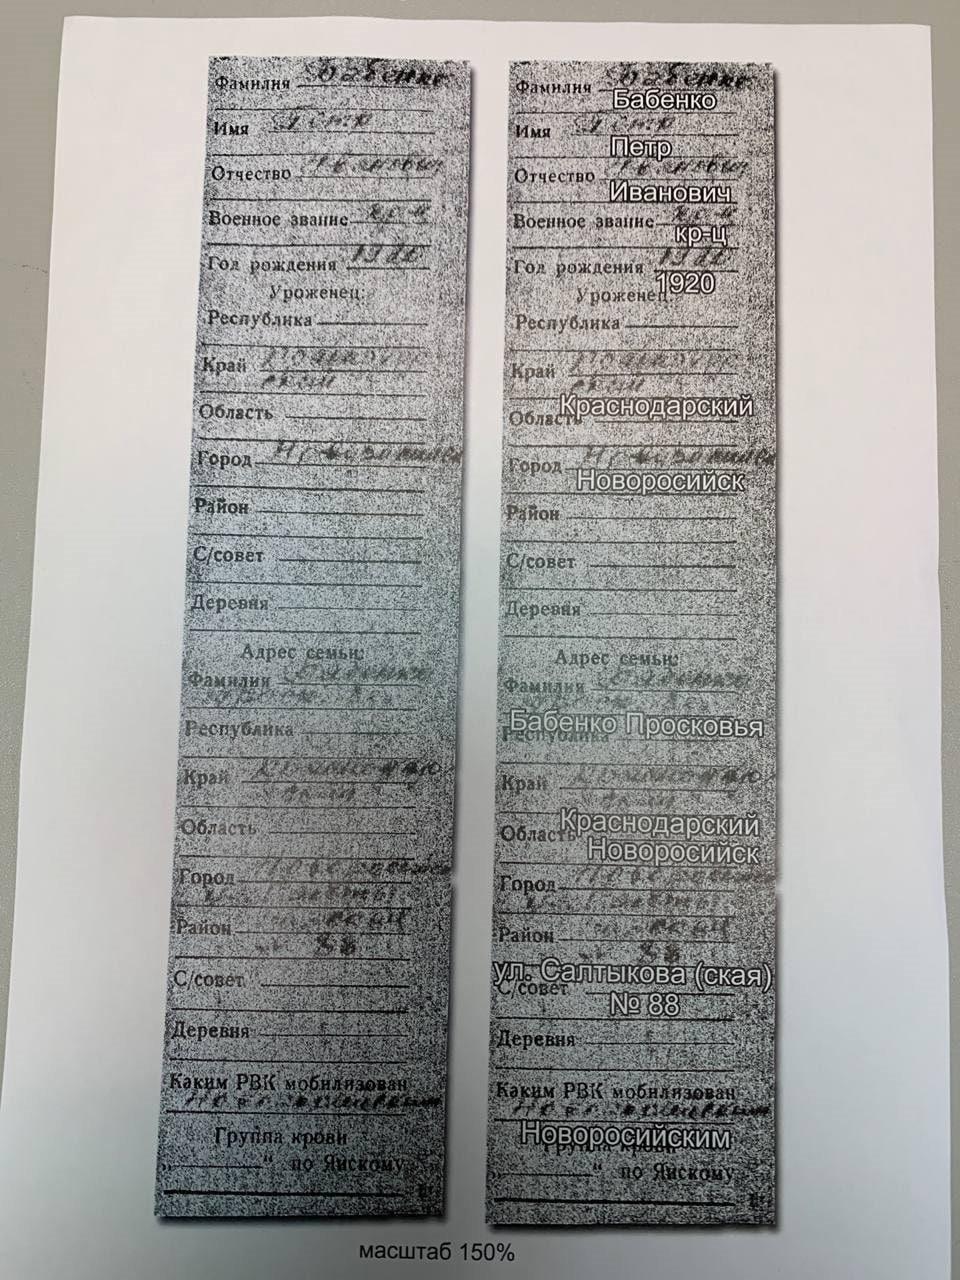 Фамилия Бабенко
Имя Петр
Отчество
Военное звание
Год рождения 1920
Уроженец:
Республика
Край
ский
Область
Город
Район
С/совет
Деревня
Адрес семьи:
Фамилия Бабенко
Республика
Край
Область
Город
Район
88
С/совет
Деревня
Каким РВК мобилизован
Группа крови
„ “ по Янскому
Фамилия Бабенко
Бабенко
Имя Петр
Петр
Отчество
Иванович
Военное звание
кр-ц
Год рождения 1920
1920
Уроженец:
Республика
Край
ский
Краснодарский
Область
Город
Новоросийск
Район
С/совет
Деревня
Адрес семьи:
Фамилия Бабенко
Бабенко Просковья
Республика
Край
Краснодарский
Область
Новоросийск
Город
Район
88
ул. Салтыкова (ская)
С/совет
№ 88
Деревня
Каким РВК мобилизован
Новоросийским
Группа крови
„ “ по Янскому
масштаб 150%